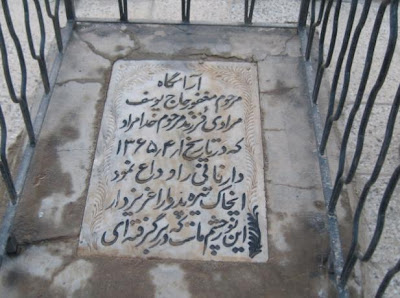 آرامگاه
مرحوم مغفور حاج یوسف
مرادی فرزند مرحوم خدامراد
که در تاریخ ۱۳۶۵/۴
دار فانی را وداع نمود
ایخاک تیره پدر ما را عزیز دار
این نور چشم ماست که در بر گرفته ای